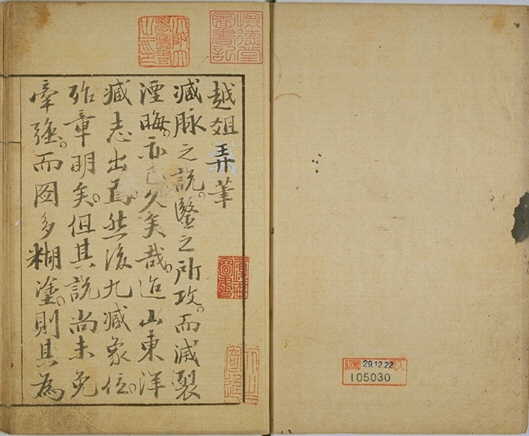 越俎弄筆
臧脉之說。毉之所攻。而臧製
湮晦。亦已久矣哉。迨山東洋
臧志出焉。然後九臧位。
章明矣。但其說尚未免
牽強。而圖多糊塗。則其為
29.12.22
105030